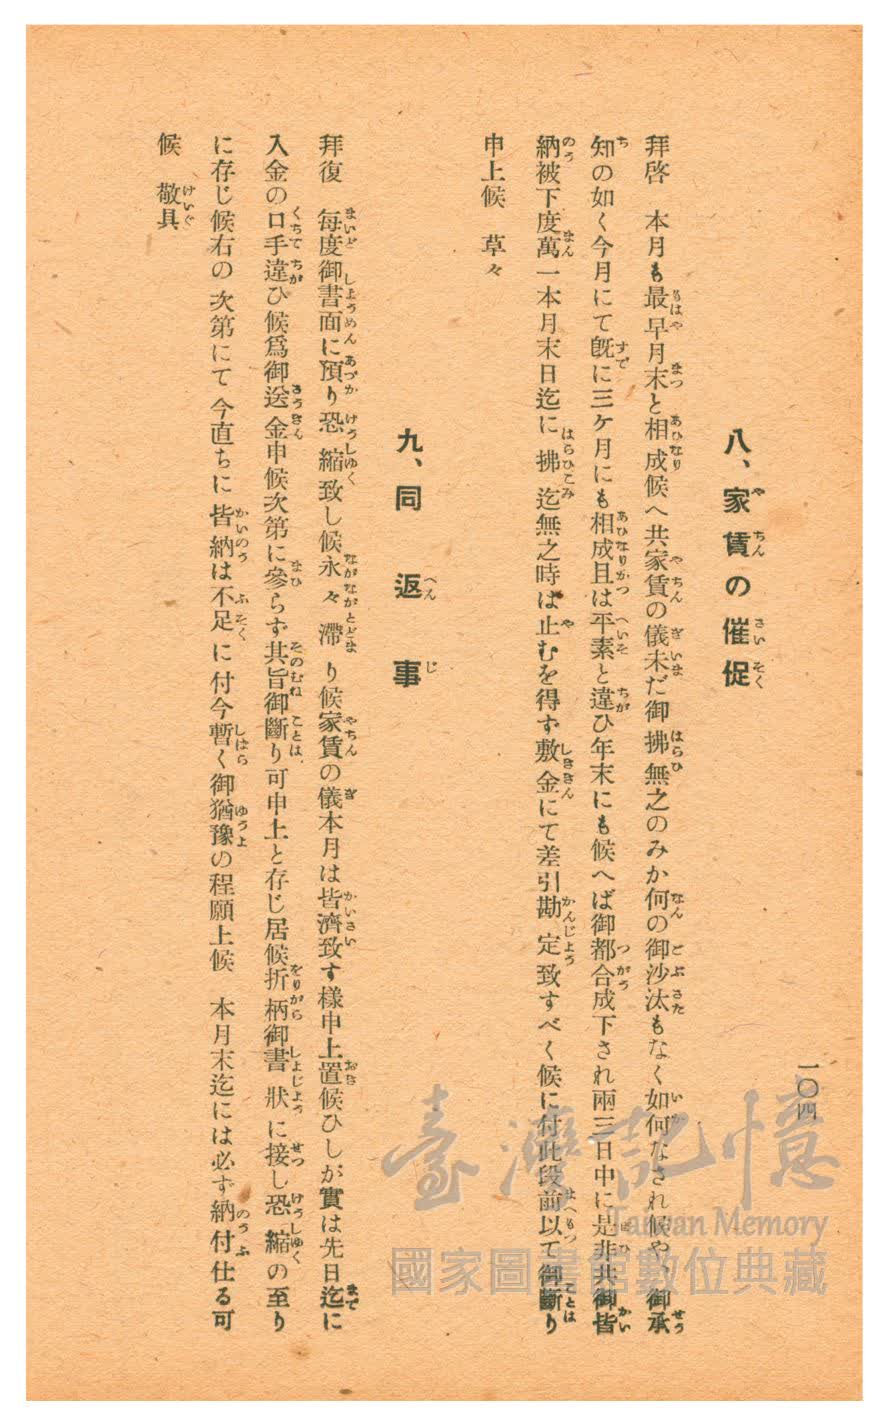 一〇四
八、家賃の催促
拜啓　本月も最早月末と相成候へ共家賃の儀未だ御拂無之のみか何の御沙汰もなく如何なされ候や、御承
知の如く今月にて既に三ケ月にも相成且は平素と違ひ年末にも候へば御都合成下され兩三日中に是非共御皆
納被下度萬一本月末日迄に拂迄無之時は止むを得ず敷金にて差引勘定致すべく候に付此段前以て御斷り
申上候　草々
九、同返事
拜復　每度御書面に預り恐縮致し候永々滯り候家賃の儀本月は皆濟致す樣申上置候ひしが實は先日迄に
入金の口手違ひ候爲御送金申候次第に參らず其旨御斷り可申上と存じ居候折柄御書狀に接し恐縮の至り
に存じ候右の次第にて今直ちに皆納は不足に付今暫く御猶豫の程願上候　本月末迄には必ず納付仕る可
候　敬具
臺灣記憶
Taiwan Memory
國家圖書館數位典藏